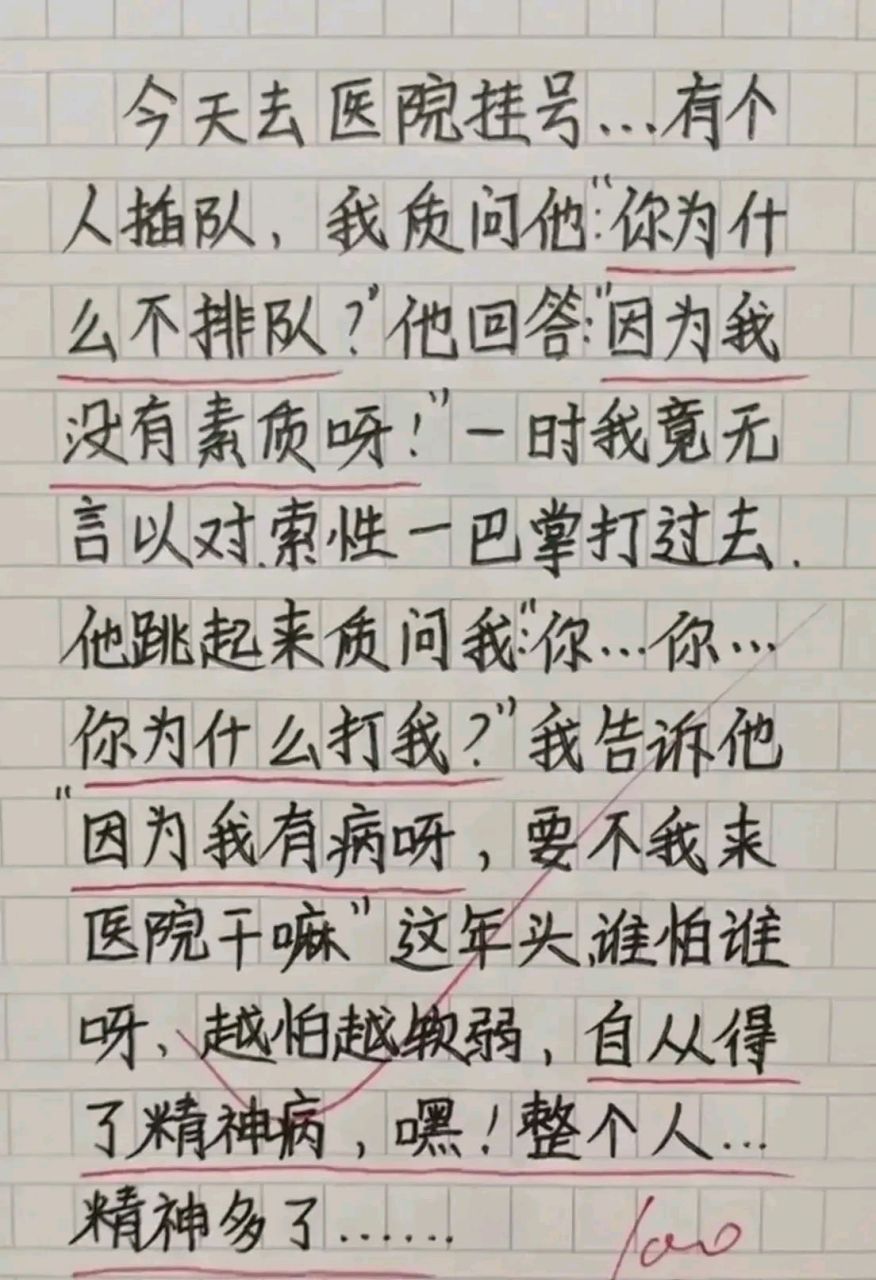 今天去医院挂号...有个
人插队，我质问他:"你为什
么不排队？"他回答:"因为我
没有素质呀！"一时我竟无
言以对.索性一巴掌打过去.
他跳起来质问我:"你...你...
你为什么打我？"我告诉他
"因为我有病呀，要不我来
医院干嘛"这年头、谁怕谁
呀、越怕越软弱，自从得
了精神病，嘿！整个人...
精神多了......
100